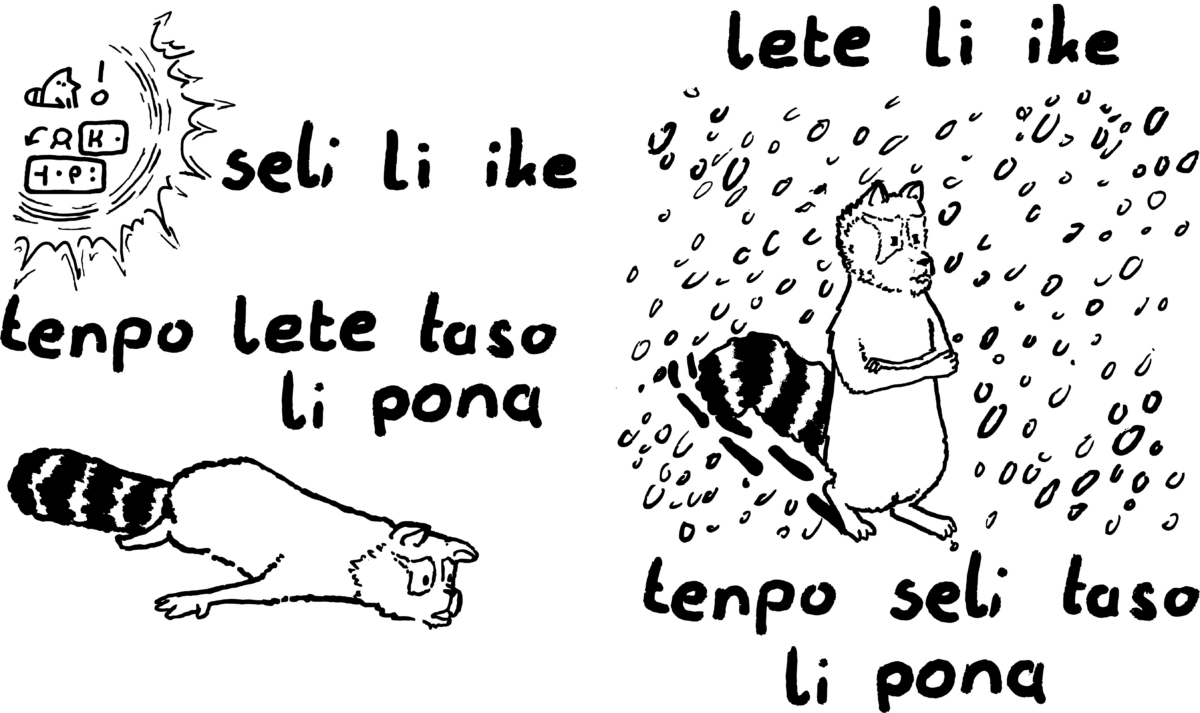 seli li ike
tenpo lete taso
li pona
lete li ike
tenpo seli taso
li pona